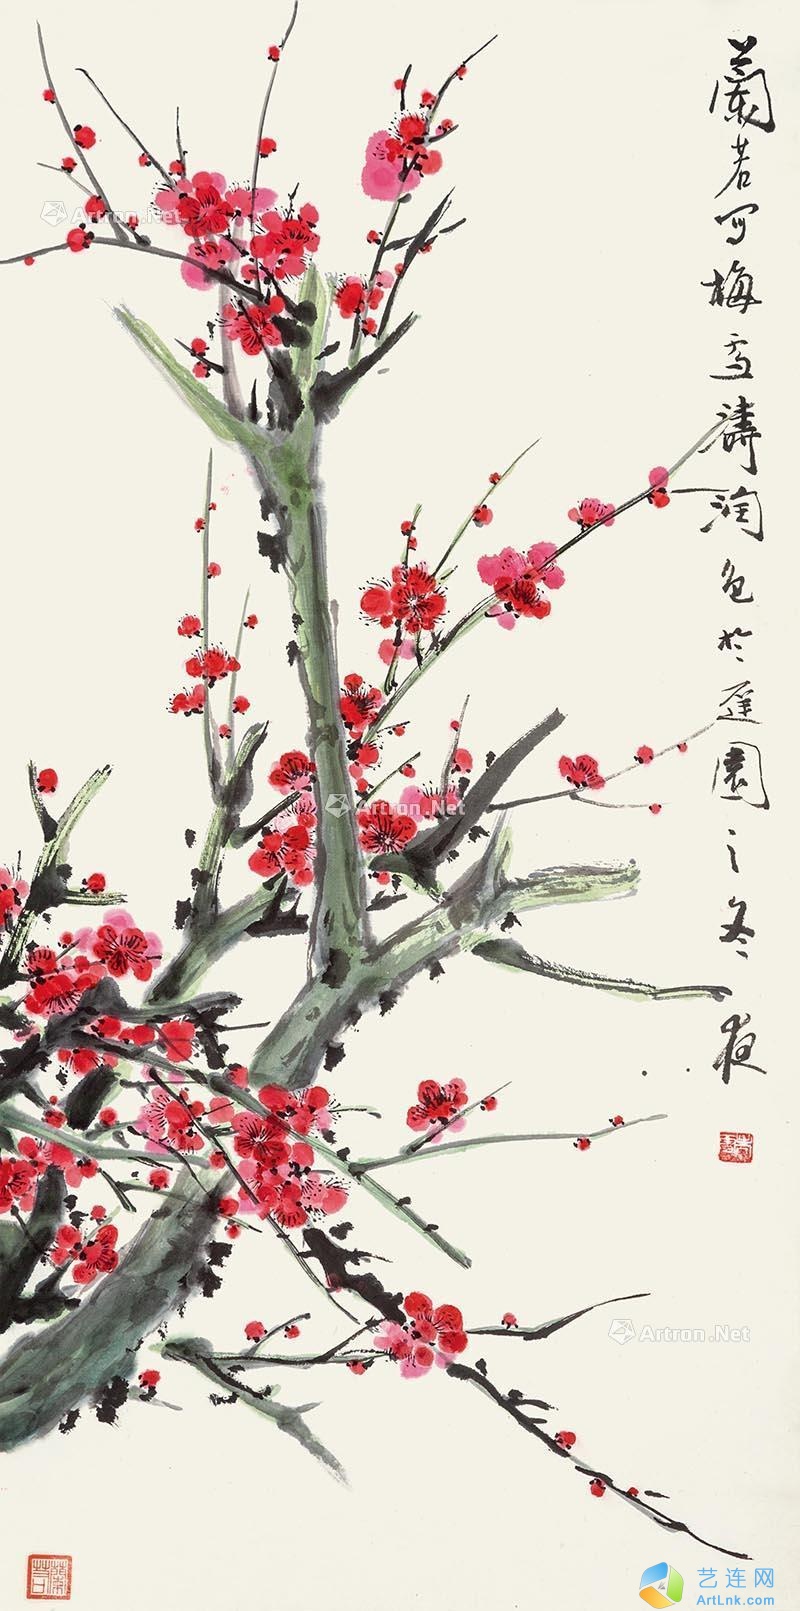 蘭若写梅雪濤润色於莲園之冬夜
Artron.Net
Artron.Net
Artron.Net
艺连网
ArtLnk.com